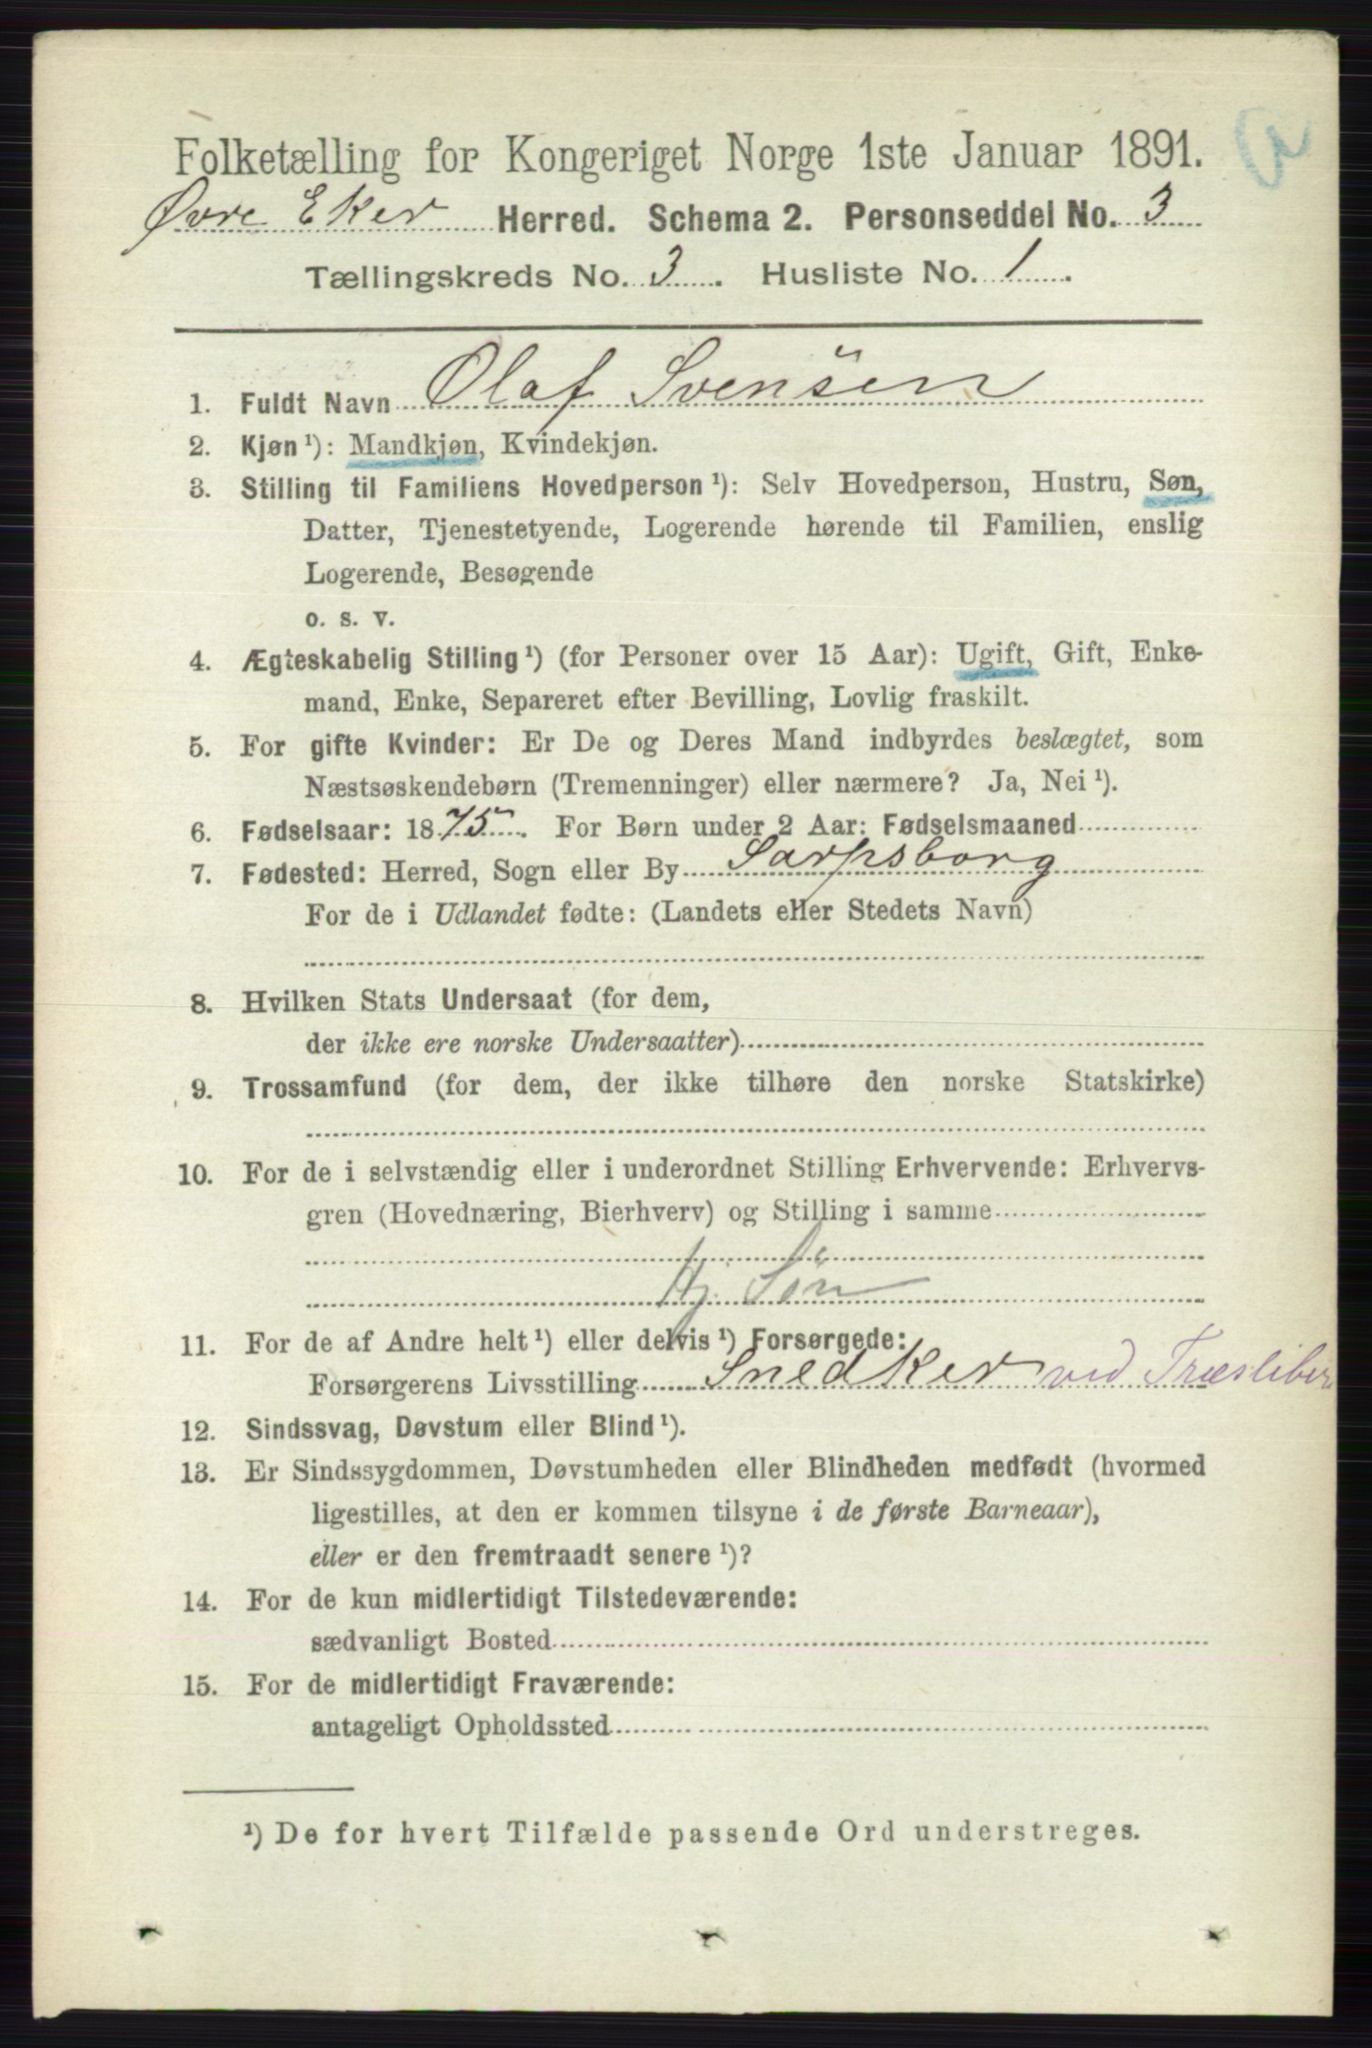 Folketælling for Kongeriget Norge 1ste Januar 1891.
Øvre Eker Herred. Schema 2. Personseddel No. 3
Tællingskreds No. 3. Husliste No. 1.
1. Fuldt Navn Olaf Svensen
2. Kjøn ¹): Mandkjøn, Kvindekjøn.
3. Stilling til Familiens Hovedperson ¹): Selv Hovedperson, Hustru, Søn,
Datter, Tjenestetyende, Logerende hørende til Familien, enslig
Logerende, Besøgende
o. s. v.
4. Ægteskabelig Stilling ¹) (for Personer over 15 Aar): Ugift, Gift, Enke-
mand, Enke, Separeret efter Bevilling, Lovlig fraskilt.
5. For gifte Kvinder: Er De og Deres Mand indbyrdes beslægtet, som
Næstsøskendebørn (Tremenninger) eller nærmere? Ja, Nei ¹).
6. Fødselsaar: 1875. For Børn under 2 Aar: Fødselsmaaned
7. Fødested: Herred, Sogn eller By Sarpsborg
For de i Udlandet fødte: (Landets eller Stedets Navn)
8. Hvilken Stats Undersaat (for dem,
der ikke ere norske Undersaatter)
9. Trossamfund (for dem, der ikke tilhøre den norske Statskirke)
10. For de i selvstændig eller i underordnet Stilling Erhvervende: Erhvervs-
gren (Hovednæring, Bierhverv) og Stilling i samme
Hj. Søn
11. For de af Andre helt ¹) eller delvis ¹) Forsørgede:
Forsørgerens Livsstilling Snedker ved Træsliberi
12. Sindssvag, Døvstum eller Blind ¹).
13. Er Sindssygdommen, Døvstumheden eller Blindheden medfødt (hvormed
ligestilles, at den er kommen tilsyne i de første Barneaar),
eller er den fremtraadt senere ¹)?
14. For de kun midlertidigt Tilstedeværende:
sædvanligt Bosted
15. For de midlertidigt Fraværende:
antageligt Opholdssted
¹) De for hvert Tilfælde passende Ord understreges.